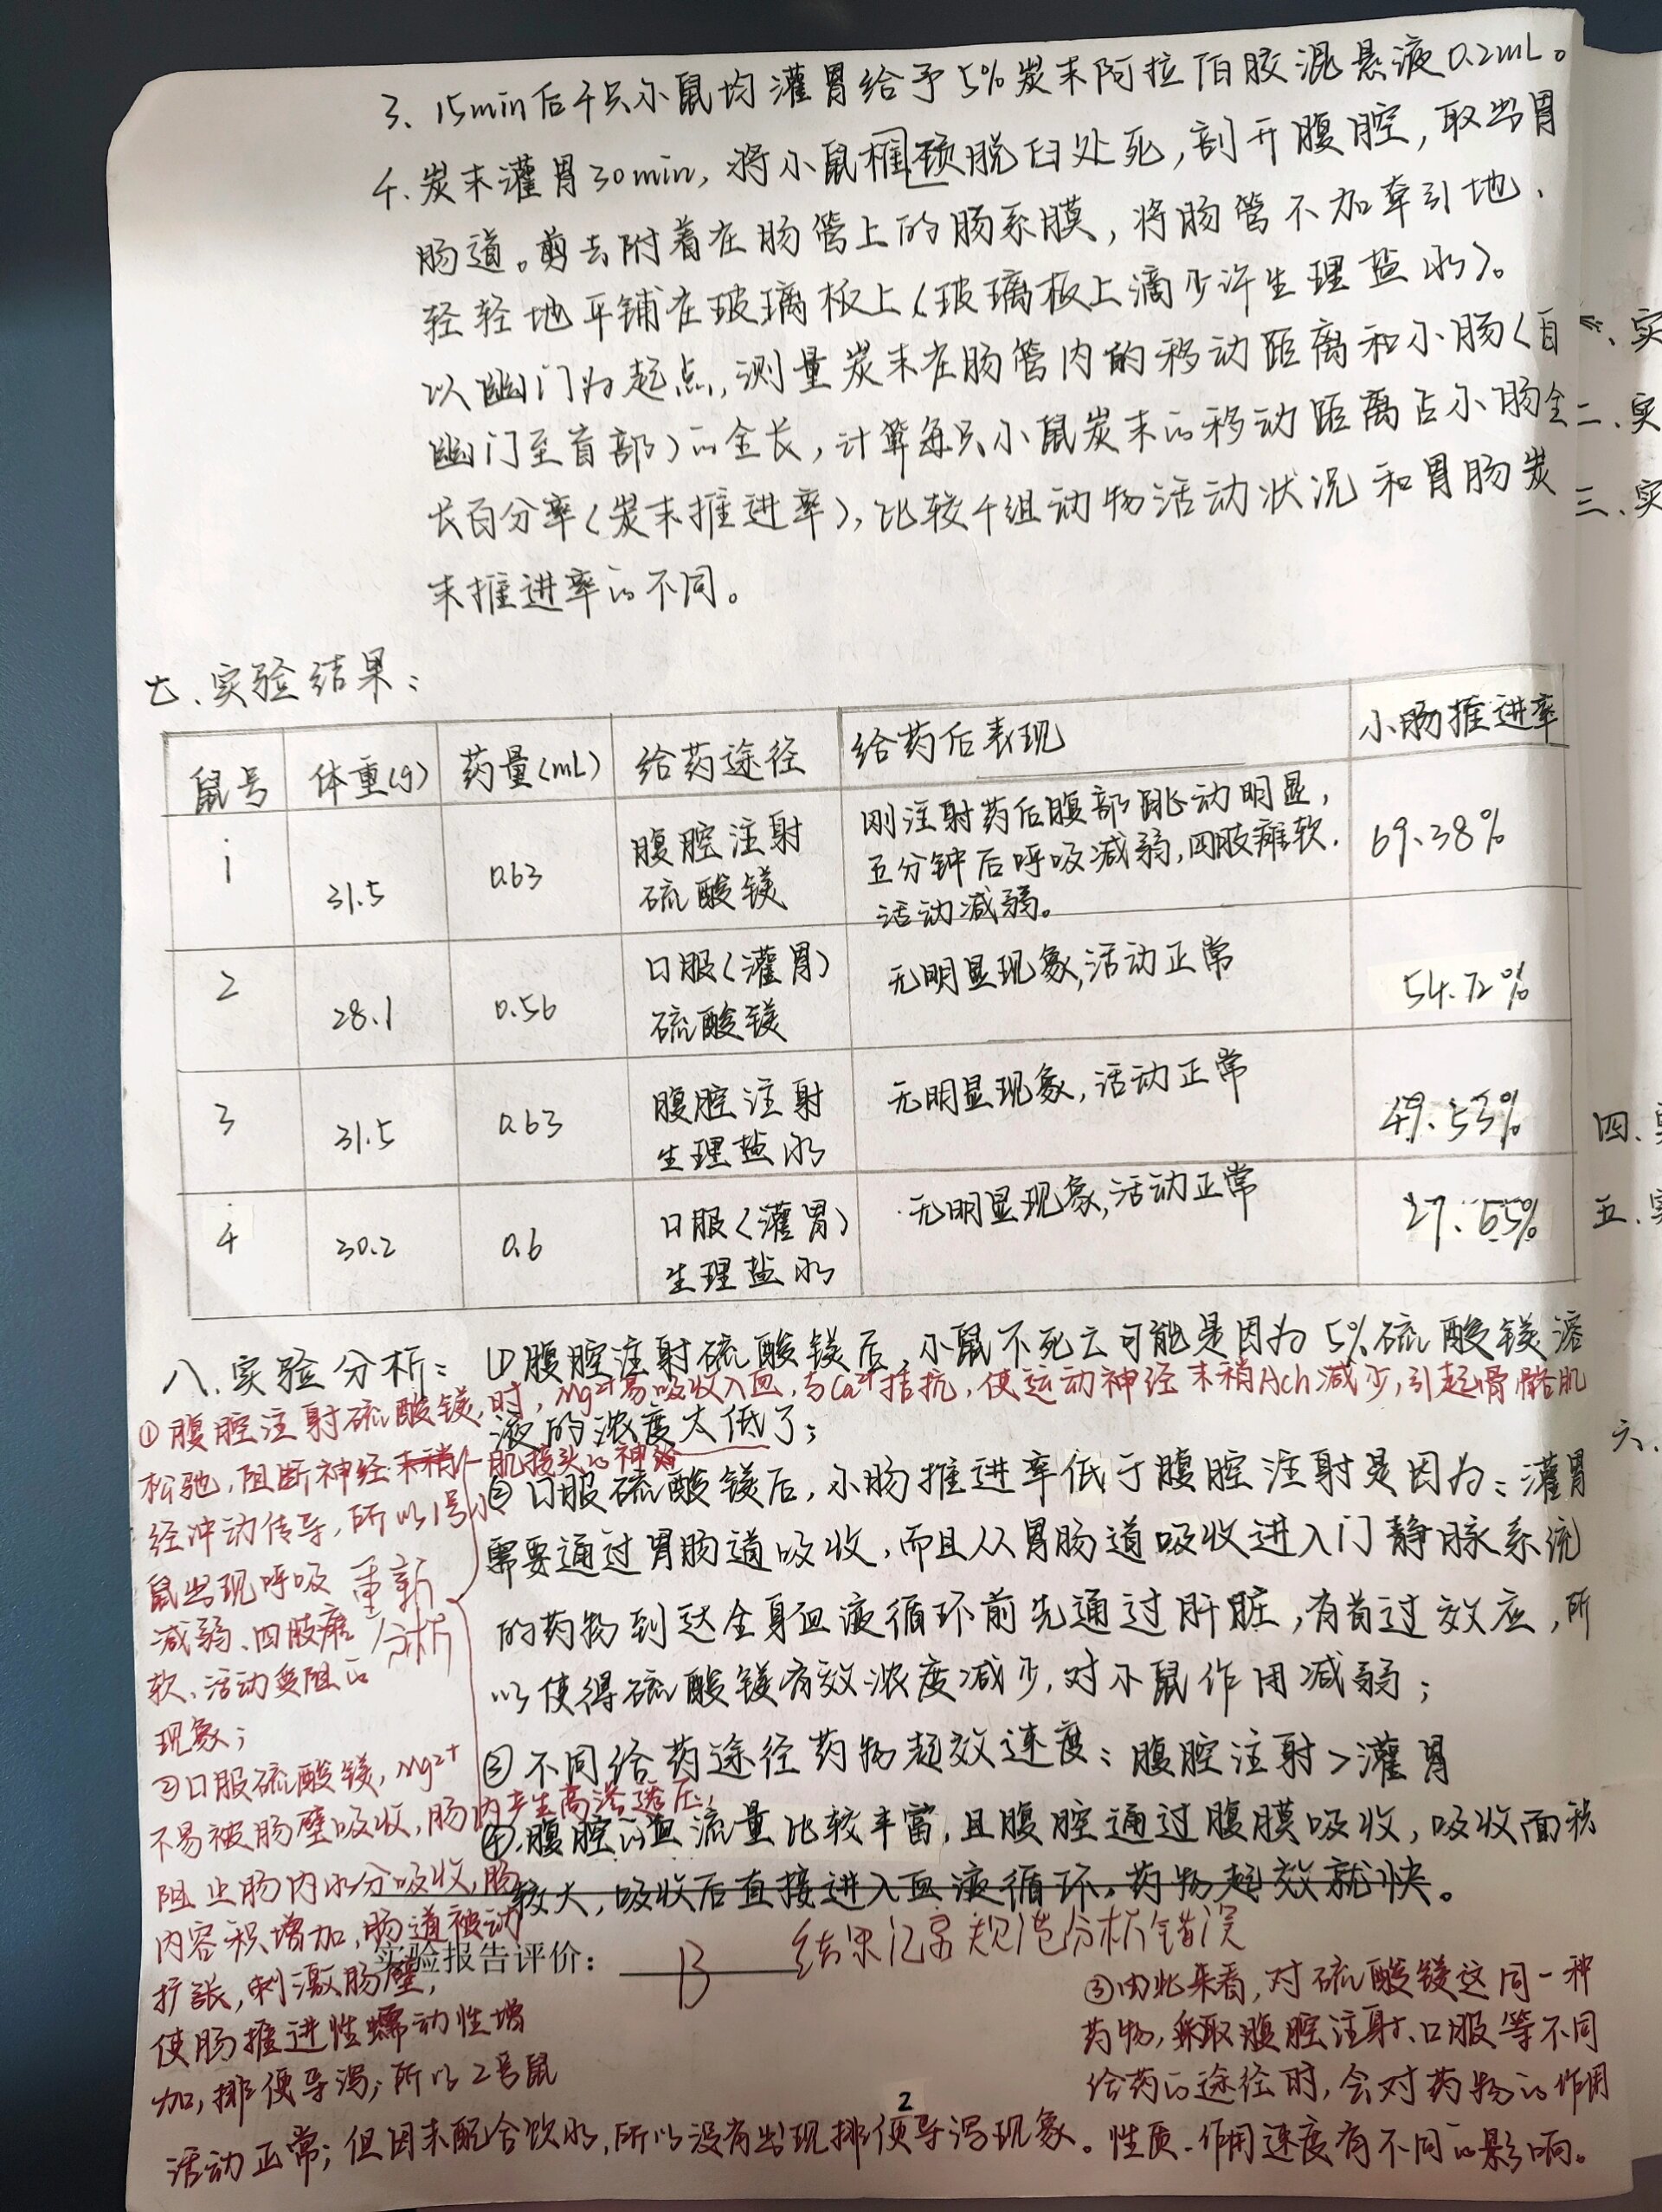 3、15min后4只小鼠均灌胃给予5%炭末阿拉伯胶混悬液0.2mL。
4、炭末灌胃30min,将小鼠颈脱臼处死,剖开腹腔,取出胃
肠道。剪去附着在肠管上的肠系膜,将肠管不加牵引地、
轻轻地平铺在玻璃板上(玻璃板上滴少许生理盐水)。
以幽门为起点,测量炭末在肠管内的移动距离和小肠(自
幽门至盲部)的全长,计算每只小鼠炭末的移动距离占小肠全
长百分率(炭末推进率),比较4组动物活动状况和胃肠炭
末推进率的不同。
七、实验结果:
鼠号 体重(g) 药量(mL) 给药途径 给药后表现 小肠推进率
1 31.5 0.63 腹腔注射硫酸镁 刚注射药后腹部跳动明显,五分钟后呼吸减弱,四肢瘫软.活动减弱。 69.38%
2 28.1 0.56 口服(灌胃)硫酸镁 无明显现象,活动正常 54.72%
3 31.5 0.63 腹腔注射生理盐水 无明显现象,活动正常 49.53%
4 30.2 0.6 口服(灌胃)生理盐水 无明显现象,活动正常 27.65%
八、实验分析:①腹腔注射硫酸镁后,小鼠不死亡可能是因为5%硫酸镁溶
液的浓度太低了;
②口服硫酸镁后,小肠推进率低于腹腔注射是因为:灌胃
需要通过胃肠道吸收,而且从胃肠道吸收进入门静脉系统
的药物到达全身血液循环前先通过肝脏,有首过效应,所
以使得硫酸镁有效浓度减少,对小鼠作用减弱;
③不同给药途径药物起效速度:腹腔注射>灌胃
④.腹腔的血流量比较丰富,且腹腔通过腹膜吸收,吸收面积
较大,吸收后直接进入血液循环,药物起效就快。
①腹腔注射硫酸镁时,Mg²⁺易吸收入血,与Ca²⁺拮抗,使运动神经末稍Ach减少,引起骨骼肌
松驰,阻断神经肌接头的神
经冲动传导,所以1号小
鼠出现呼吸
减弱、四肢瘫
软、活动受阻的
现象;
重新
分析
②口服硫酸镁,Mg²⁺
不易被肠壁吸收,肠内产生高渗透压,
阻止肠内水分吸收,肠
内容积增加,肠道被动
扩张,刺激肠壁,
使肠推进性蠕动性增
加,排便导泻;所以2号鼠
活动正常;但因未配合饮水,所以没有出现排便导泻现象。
实验报告评价: B 结果记录规范分析错误
③由此来看,对硫酸镁这同一种
药物,采取腹腔注射、口服等不同
给药的途径时,会对药物的作用
性质、作用速度有不同的影响。
2
、实
二、实
三、实
四、实
五、实
六、